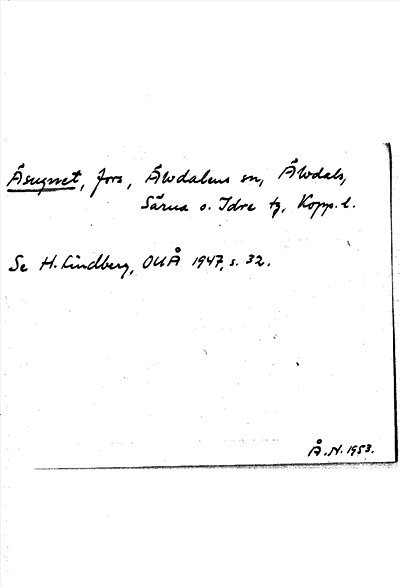 Åsugnet, fors, Älvdalens sn, Älvdals,
Särna o. Idre tg, Kopp. l.
Se H. Lindberg, OUÅ 1947, s. 32.
Å. N. 1953.